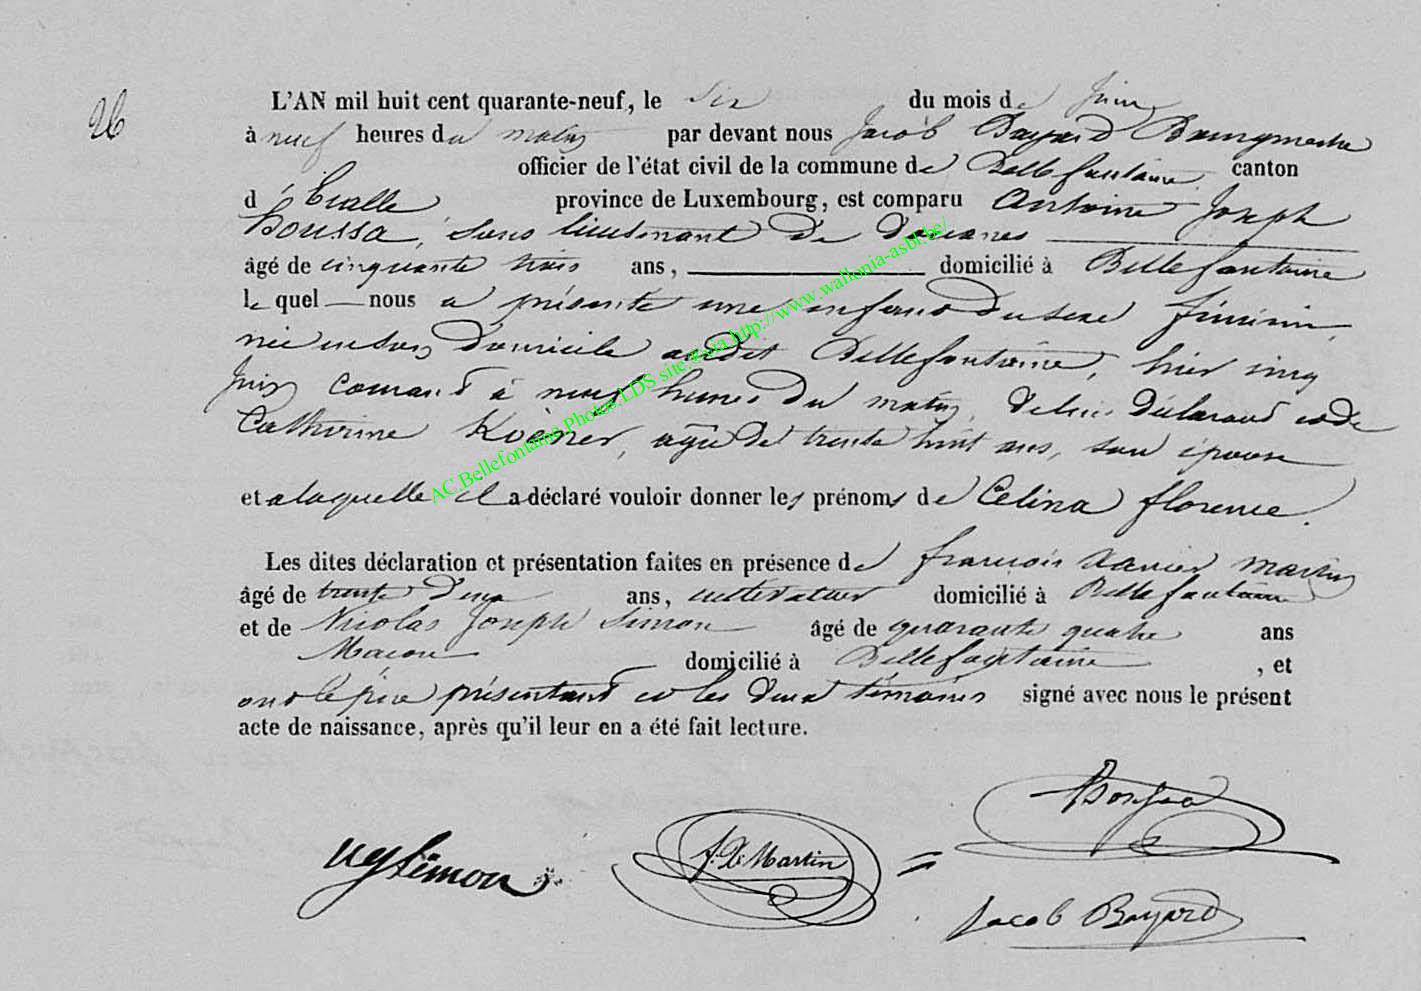 26
L'AN mil huit cent quarante-neuf, le six du mois de juin
à neuf heures du matin par devant nous Jacob Bayard Bourgmestre
officier de l'état civil de la commune de Bellefontaine canton
d'Etalle province de Luxembourg, est comparu Antoine Joseph
Houssa, sous lieutenant de douanes
âgé de cinquante trois ans, domicilié à Bellefontaine
le quel nous a présenté une enfant du sexe féminin
née en son domicile audit Bellefontaine, hier cinq
juin courant à neuf heures du matin, de lui déclarant et de
Catherine Koëner, agée de trente huit ans, son épouse
et a laquelle il a déclaré vouloir donner les prénoms de Célina florence.
Les dites déclaration et présentation faites en présence de françois Xavier Martin
âgé de trente deux ans, cultivateur domicilié à Bellefontaine
et de Nicolas Joseph Simon âgé de quarante quatre ans
Macon domicilié à Bellefontaine, et
ont le père présentant et les deux témoins signé avec nous le présent
acte de naissance, après qu'il leur en a été fait lecture.
AC.Bellefontaine.Photos.LDS site.Kwia.http://www.wallonia-asbl.be/
Houssa
NJ Simon
f. X. Martin
Jacob Bayard